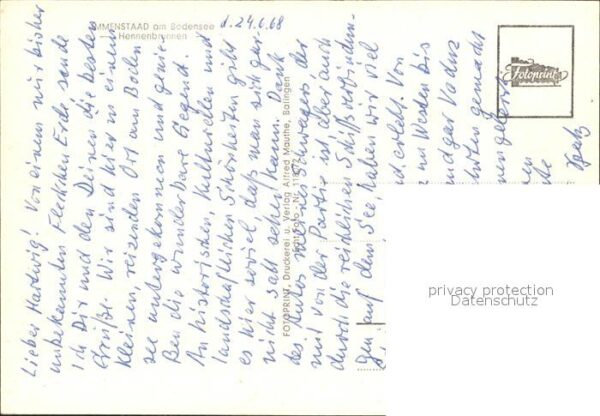 IMMENSTAAD am Bodensee
Hennenbrunnen
d. 24.6.68
Fotoprint
Lieber Hartwig! Von einem mir bisher
unbekannten Fleckchen Erde sende
ich Dir und den Deinen die besten
Grüße. Wir sind hier in einem
kleinen, reizenden Ort am Boden
see untergekommen und genie-
ßen die wunderbare Gegend.
An historischen, kulturellen und
landschaftlichen Schönheiten gibt
es hier soviel, daß man sich gar
nicht satt sehen kann. Dank
des Autos meines Schwagers der
mit von der Partie ist aber auch
durch die reichlichen Schiffsverbindun-
gen auf dem See, haben wir viel
und erlebt. Von
Werden bis
und gar Vaduz
gemacht
FOTOPRINT, Druckerei u. Verlag Alfred Mauthe, Balingen
privacy protection
Datenschutz